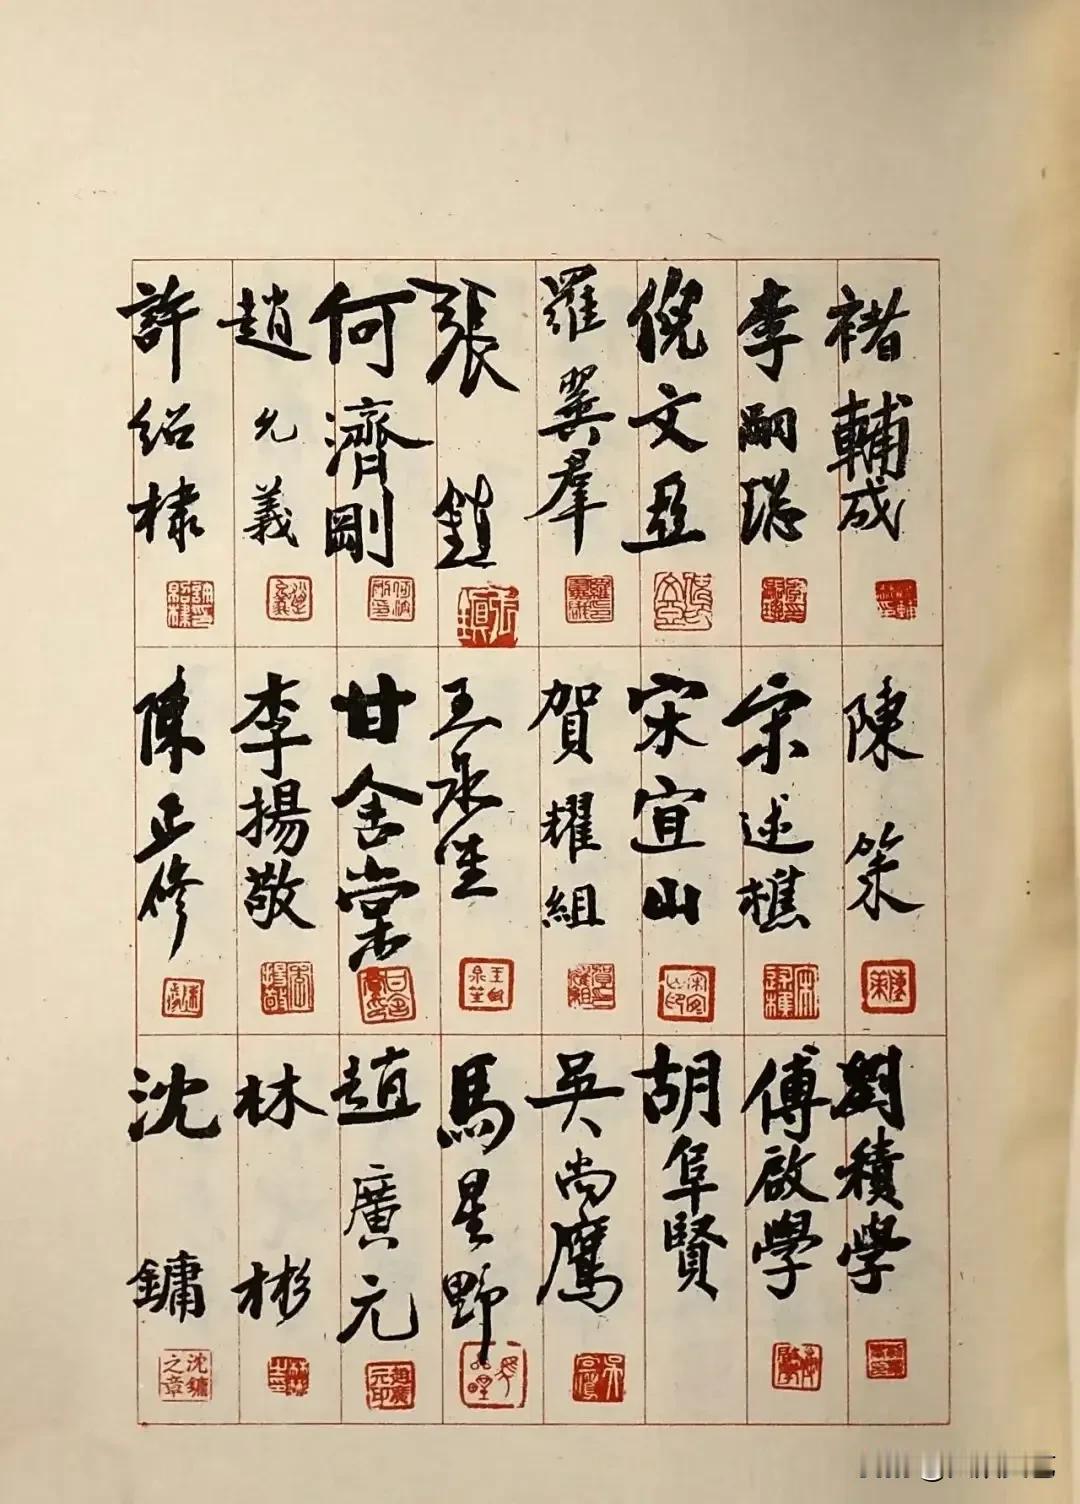 褚輔成
李嗣璁
倪文亞
羅翼羣
張鎮
何濟剛
趙允義
許紹棣
陳策
宋述樵
宋宜山
賀耀組
王泉笙
甘舍棠
李揚敬
陳正修
劉積學
傅啟學
胡阜賢
吳尚鷹
馬星野
趙廣元
林彬
沈鏞
沈鏞之章